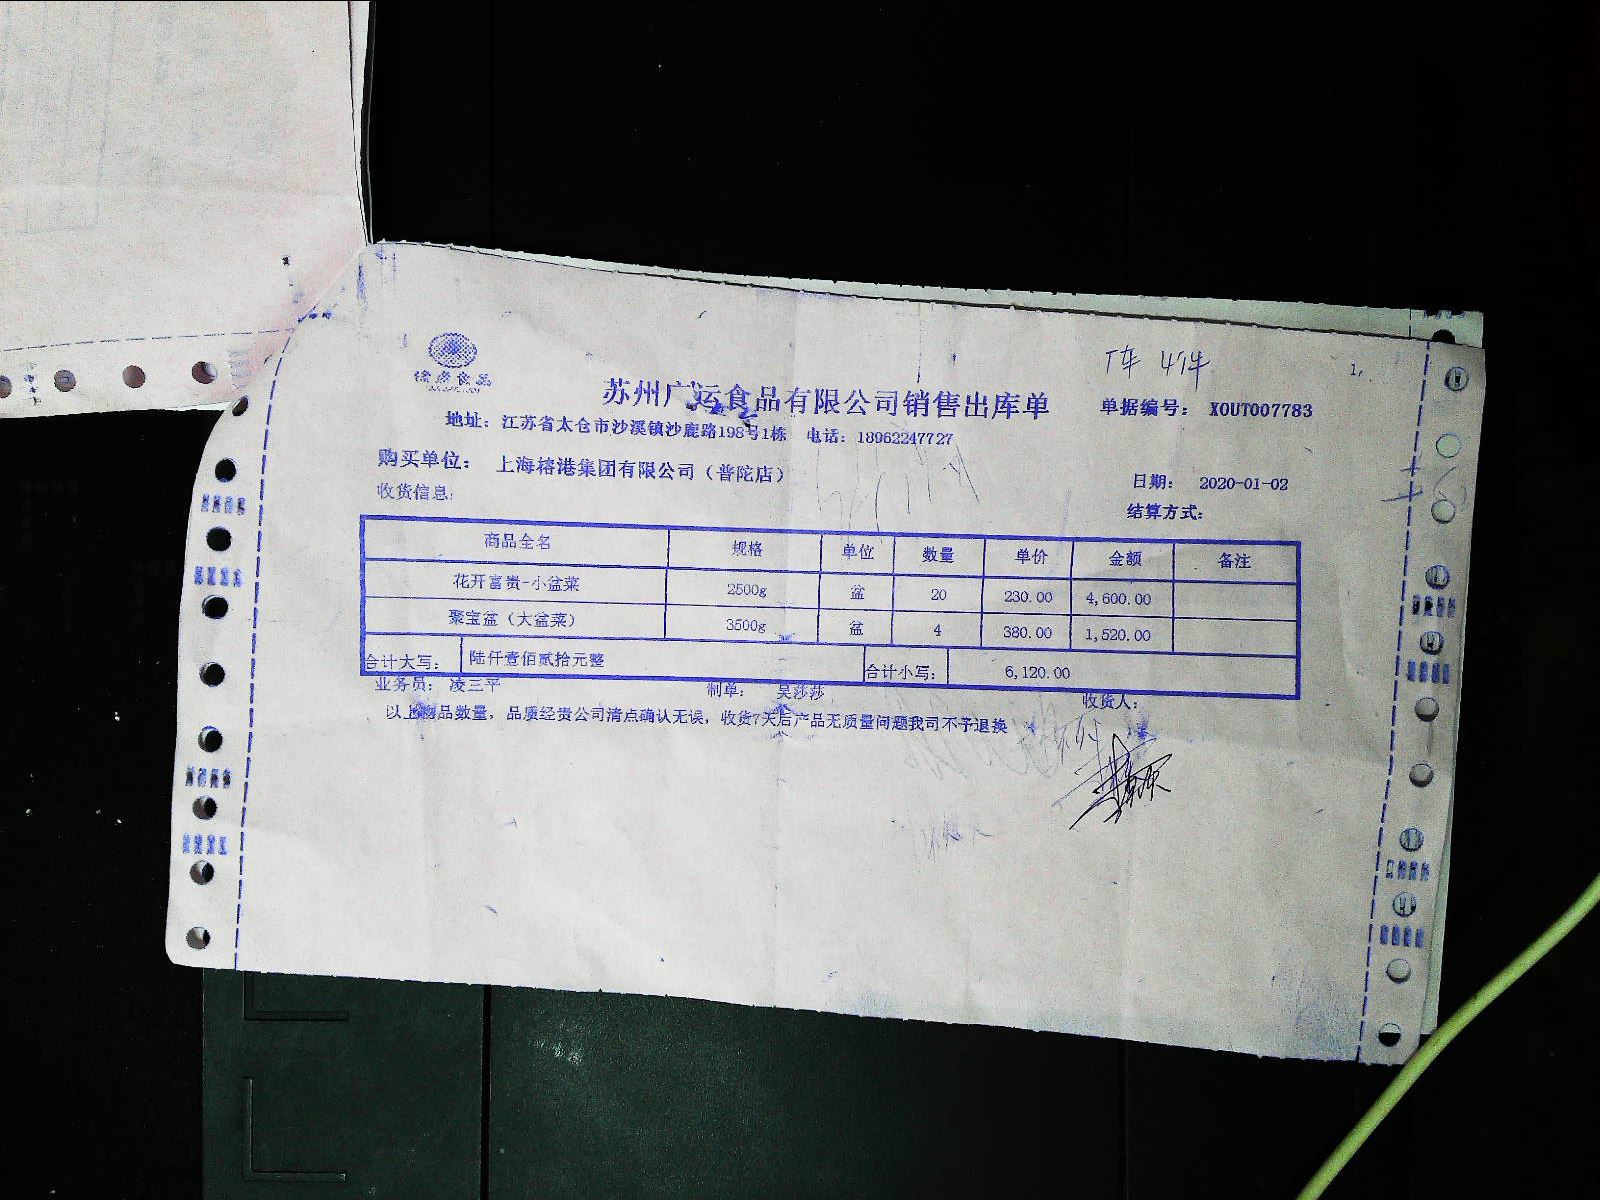 苏州广运食品有限公司销售出库单
单据编号: XOUT007783
地址: 江苏省太仓市沙溪镇沙鹿路198号1栋 电话: 18962247727
购买单位: 上海榕港集团有限公司(普陀店)
日期: 2020-01-02
收货信息:
结算方式:
商品全名 规格 单位 数量 单价 金额 备注
花开富贵-小盆菜 2500g 盆 20 230.00 4,600.00
聚宝盆(大盆菜) 3500g 盆 4 380.00 1,520.00
合计大写: 陆仟壹佰贰拾元整 合计小写: 6,120.00
业务员: 凌三平 制单: 吴莎莎 收货人:
以上物品数量, 品质经贵公司清点确认无误, 收货7天后产品无质量问题我司不予退换